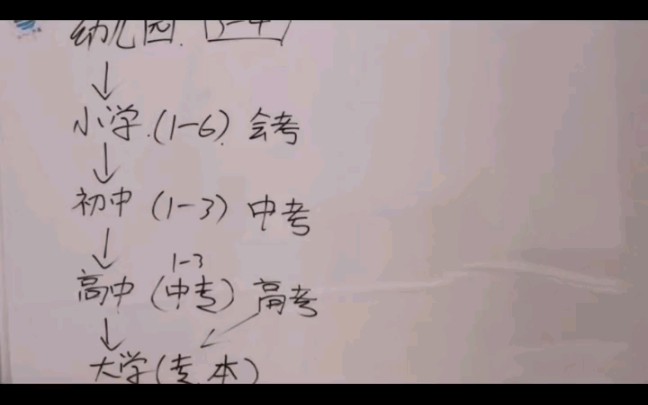 幼儿园.
↓
小学.(1-6) 会考
↓
初中 (1-3) 中考
↓
1-3
高中 (中专) 高考
↓
大学(专.本)